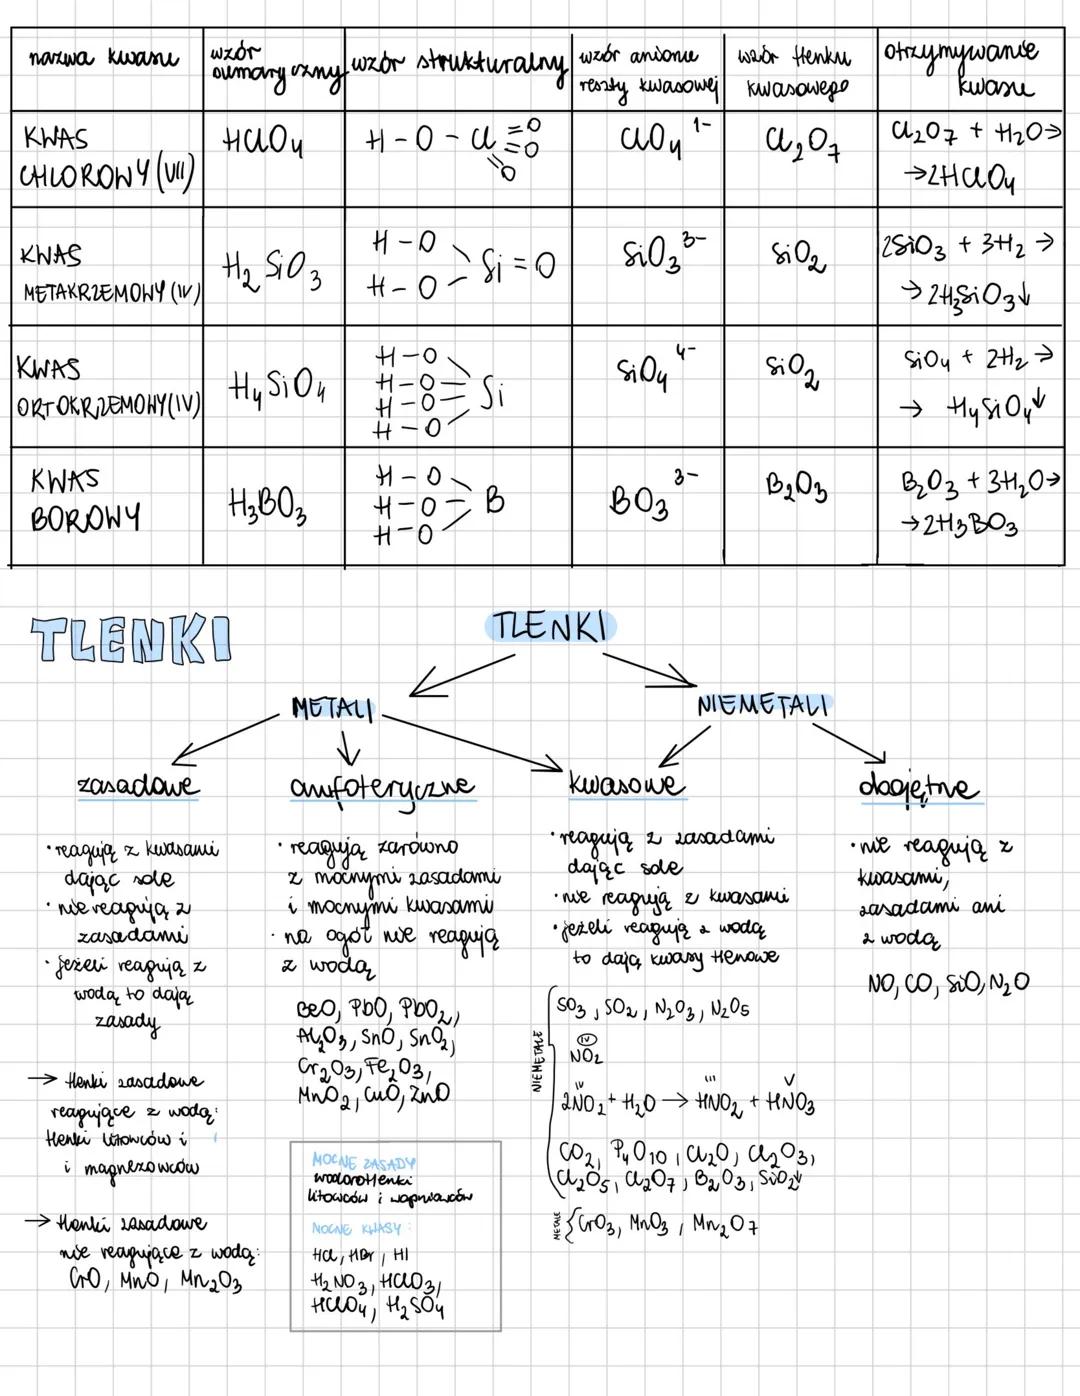 nazwa kwasu
wzór sumaryczny
wzór strukturalny
wzór anionu reszty kwasowej
wzór tlenku kwasowego
otrzymywanie kwasu
KWAS CHLOROWY (VII)
HClO₄
H-O-Cl=O
=O
=O
ClO₄ ¹⁻
Cl₂O₇
Cl₂O₇ + H₂O →
→ 2HClO₄
KWAS METAKRZEMOWY (IV)
H₂SiO₃
H-O
H-O
Si=O
SiO₃ ³⁻
SiO₂
2SiO₃ + 3H₂ →
→ 2H₃SiO₃↓
KWAS ORTOKRZEMOWY (IV)
H₄SiO₄
H-O
H-O
H-O
H-O
Si
SiO₄ ⁴⁻
SiO₂
SiO₄ + 2H₂ →
→ H₄SiO₄↓
KWAS BOROWY
H₃BO₃
H-O
H-O
H-O
B
BO₃ ³⁻
B₂O₃
B₂O₃ + 3H₂O →
→ 2H₃BO₃
TLENKI
TLENKI
METALI
NIEMETALI
zasadowe
• reagują z kwasami
dając sole
• nie reagują z
zasadami
• jeżeli reagują z
wodą to dają
zasady
→ tlenki zasadowe
reagujące z wodą:
tlenki litowców i
i magnezowców
→ tlenki zasadowe
nie reagujące z wodą:
CrO, MnO, Mn₂O₃
amfoteryczne
• reagują zarówno
z mocnymi zasadami
i mocnymi kwasami
• na ogół nie reagują
z wodą
BeO, PbO, PbO₂,
Al₂O₃, SnO, SnO₂,
Cr₂O₃, Fe₂O₃,
MnO₂, CuO, ZnO
MOCNE ZASADY
wodorotlenki
litowców i wapniowców
MOCNE KWASY:
HCl, HBr, HI
H₂NO₃, HClO₃,
HClO₄, H₂SO₄
kwasowe
• reagują z zasadami
dając sole
• nie reagują z kwasami
• jeżeli reagują z wodą
to dają kwasy tlenowe
NIEMETALE
SO₃, SO₂, N₂O₃, N₂O₅
IV
NO₂
IV III V
2NO₂ + H₂O → HNO₂ + HNO₃
CO₂, P₄O₁₀, Cl₂O, Cl₂O₃,
Cl₂O₅, Cl₂O₇, B₂O₃, SiO₂↓
METALE
CrO₃, MnO₃, Mn₂O₇
obojętne
• nie reagują z
kwasami,
zasadami ani
z wodą
NO, CO, SiO, N₂O